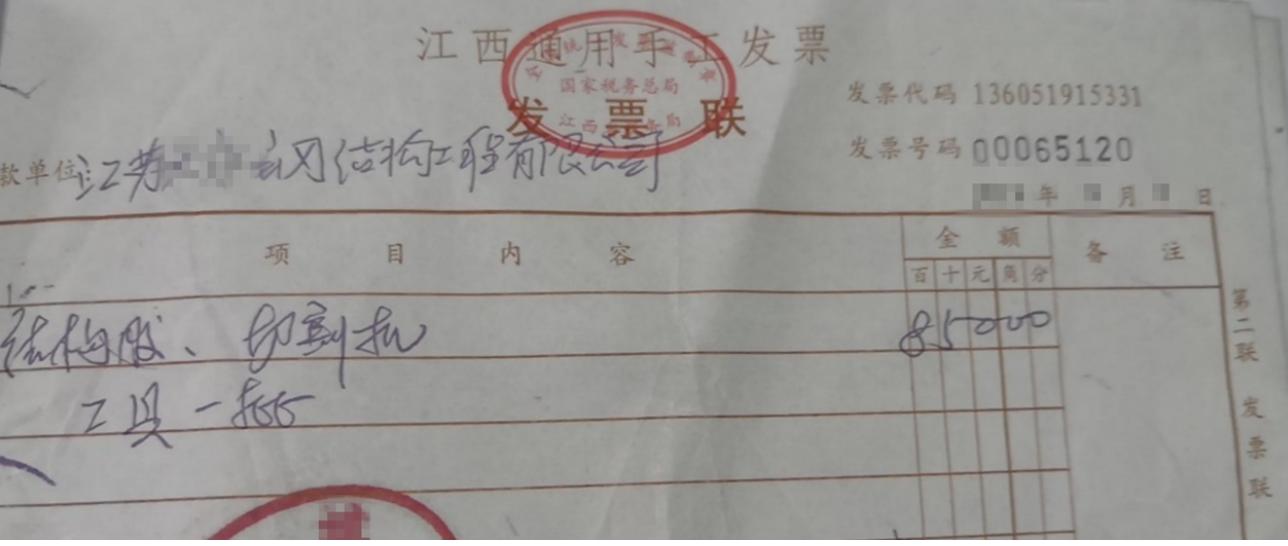 江西通用手工发票
国家税务总局
发票联
发票代码 136051915331
发票号码 00065120
款单位:江苏 钢结构工程有限公司
年 月 日
项目内容
金额
备注
百十元角分
结构胶、切割机
85000
工具一批
第二联 发票联